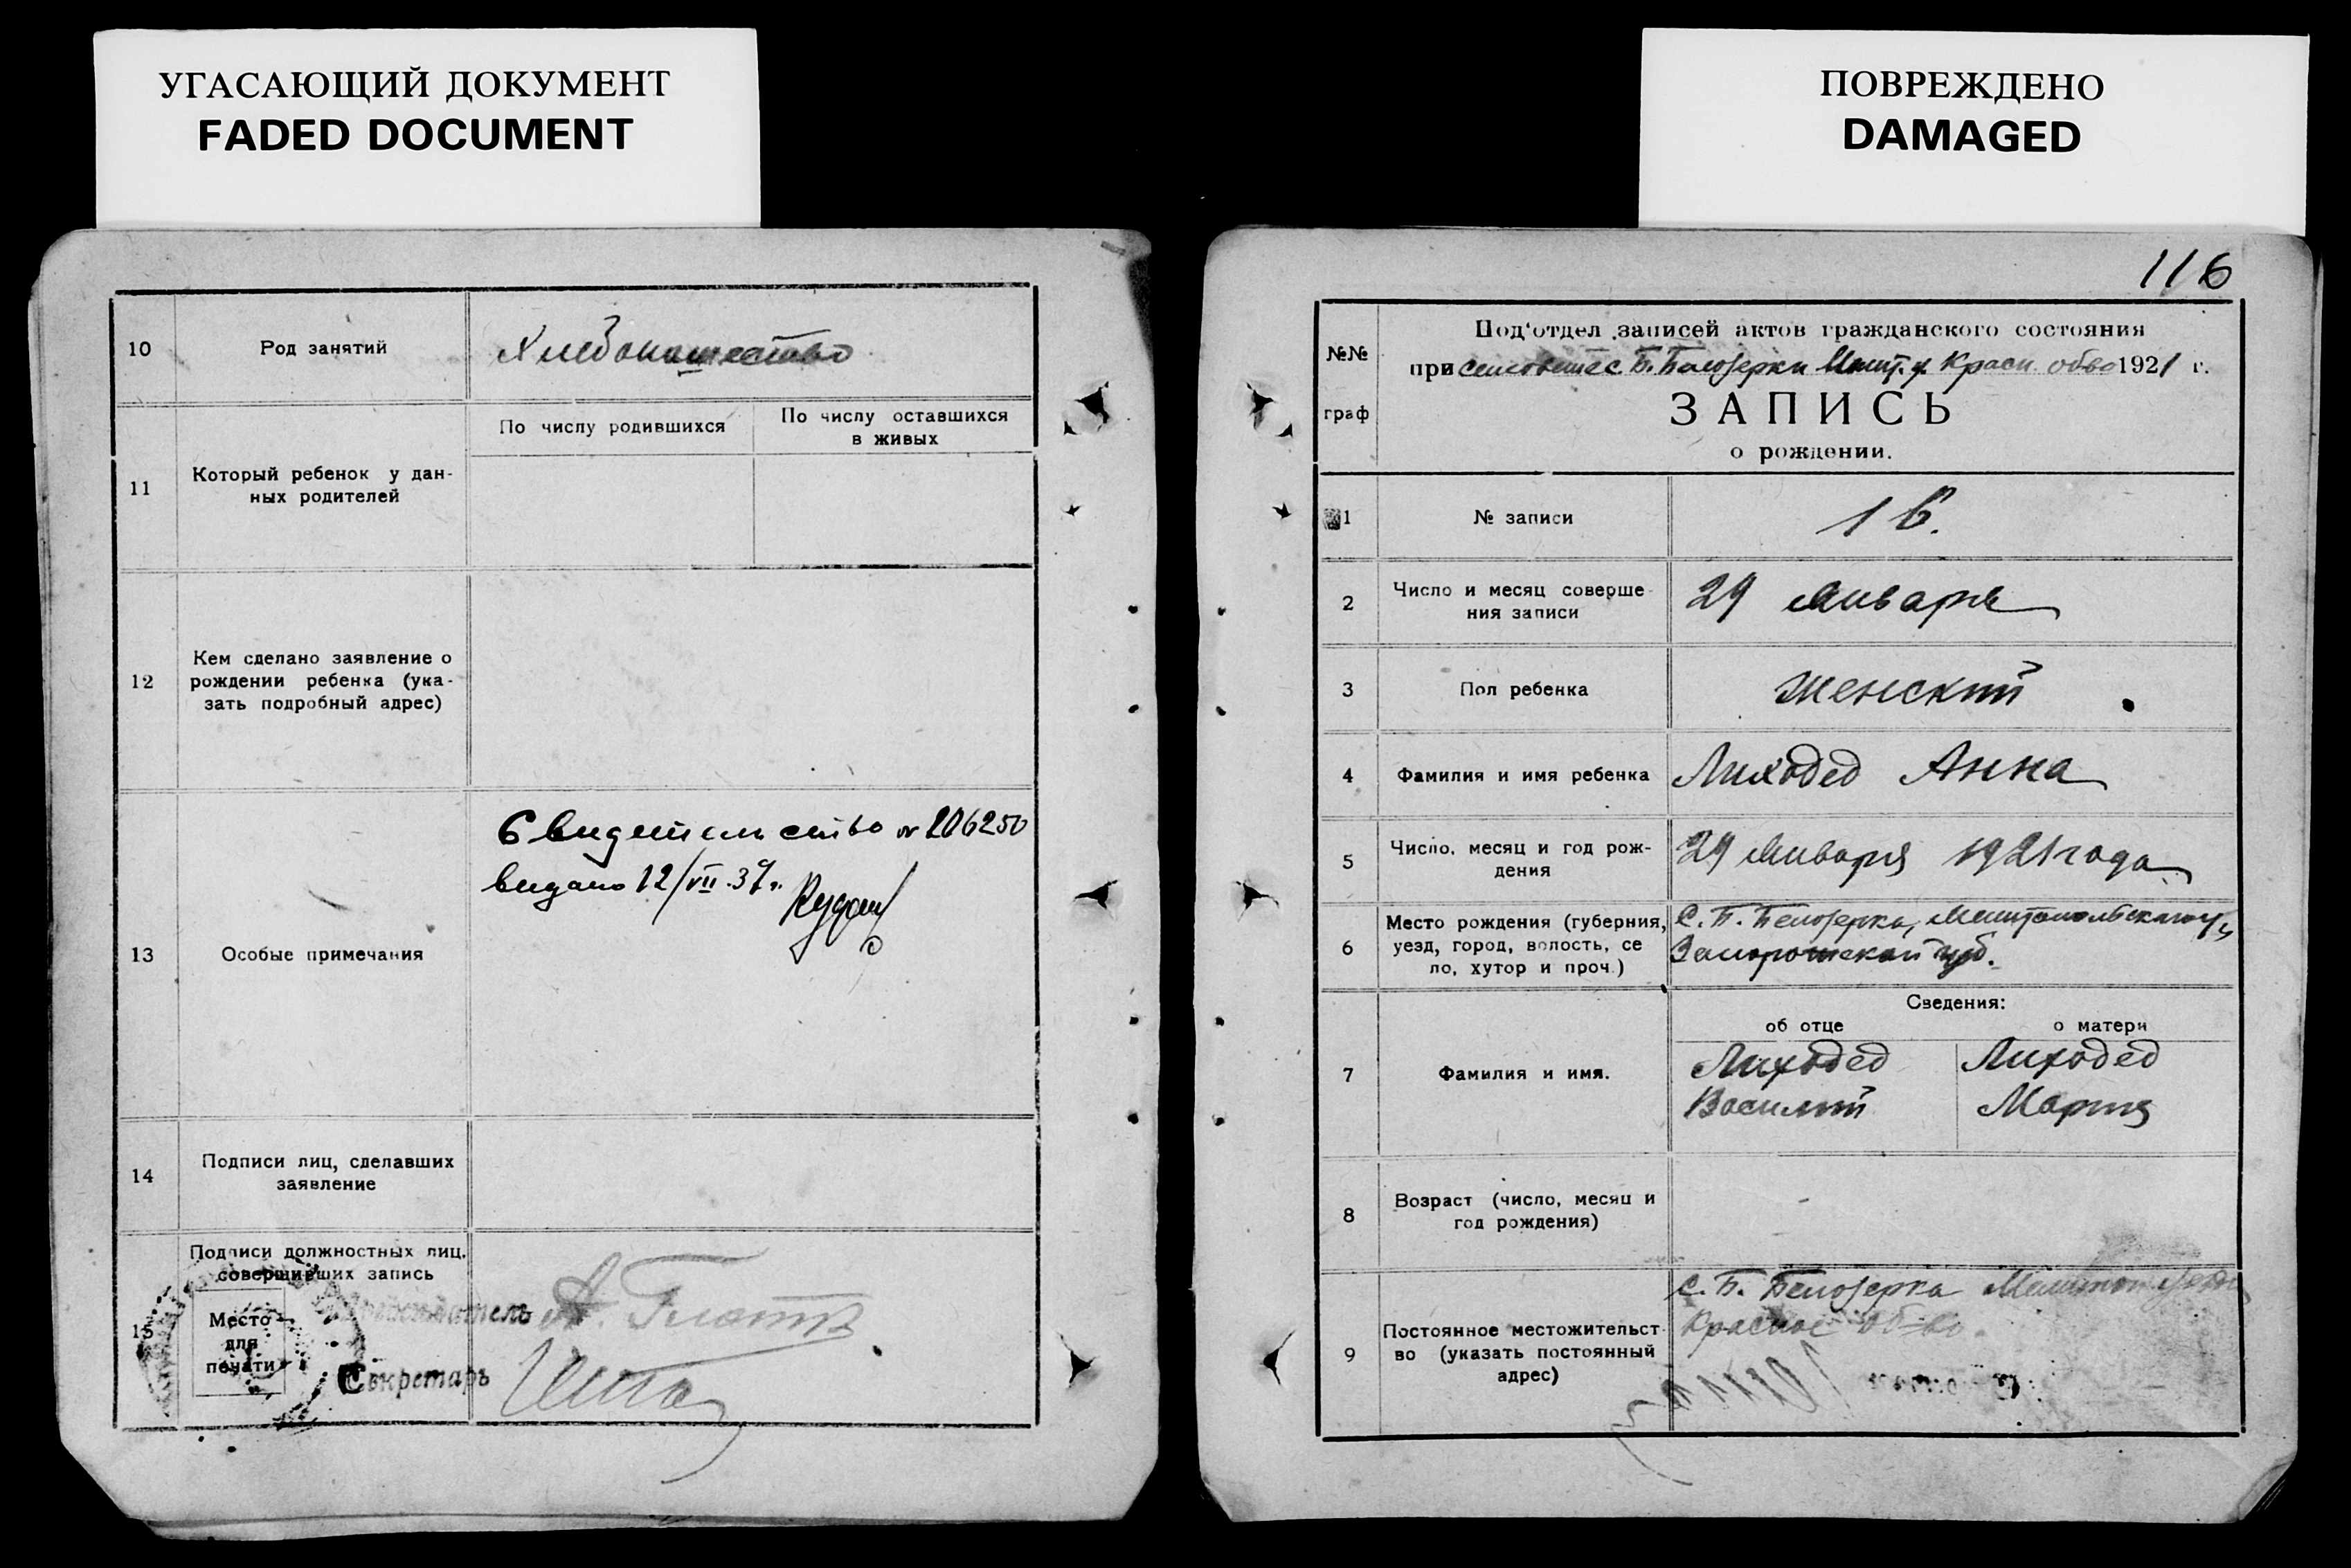 УГАСАЮЩИЙ ДОКУМЕНТ
FADED DOCUMENT
10
Род занятий
Хлебопашество
11
Который ребенок у дан-
ных родителей
По числу родившихся
По числу оставшихся
в живых
12
Кем сделано заявление о
рождении ребенка (ука-
зать подробный адрес)
13
Особые примечания
Свидетельство № 206250
видано 12/VII.37г.
14
Подписи лиц, сделавших
заявление
15
Подписи должностных лиц,
совершивших запись
Место
для
печати
Председатель А.
Секретарь
ПОВРЕЖДЕНО
DAMAGED
116
№№
граф
Под'отдел записей актов гражданского состояния
при сельсовете с. Б. Белозерки Мелит. у. Красн. обво 1921 г.
ЗАПИСЬ
о рождении.
1
№ записи
16.
2
Число и месяц соверше-
ния записи
29 Января
3
Пол ребенка
женский
4
Фамилия и имя ребенка
Лиходед Анна
5
Число, месяц и год рож-
дения
29 Января 1921 года
6
Место рождения (губерния,
уезд, город, волость, се
ло, хутор и проч.)
С. Б. Белозерка, Мелитопольского у,
Запорожской губ.
Сведения:
об отце
о матери
7
Фамилия и имя.
Лиходед
Василий
Лиходед
Мария
8
Возраст (число, месяц и
год рождения)
9
Постоянное местожительст-
во (указать постоянный
адрес)
с. Б. Белозерка Мелитоп уезда
Красное об-во.